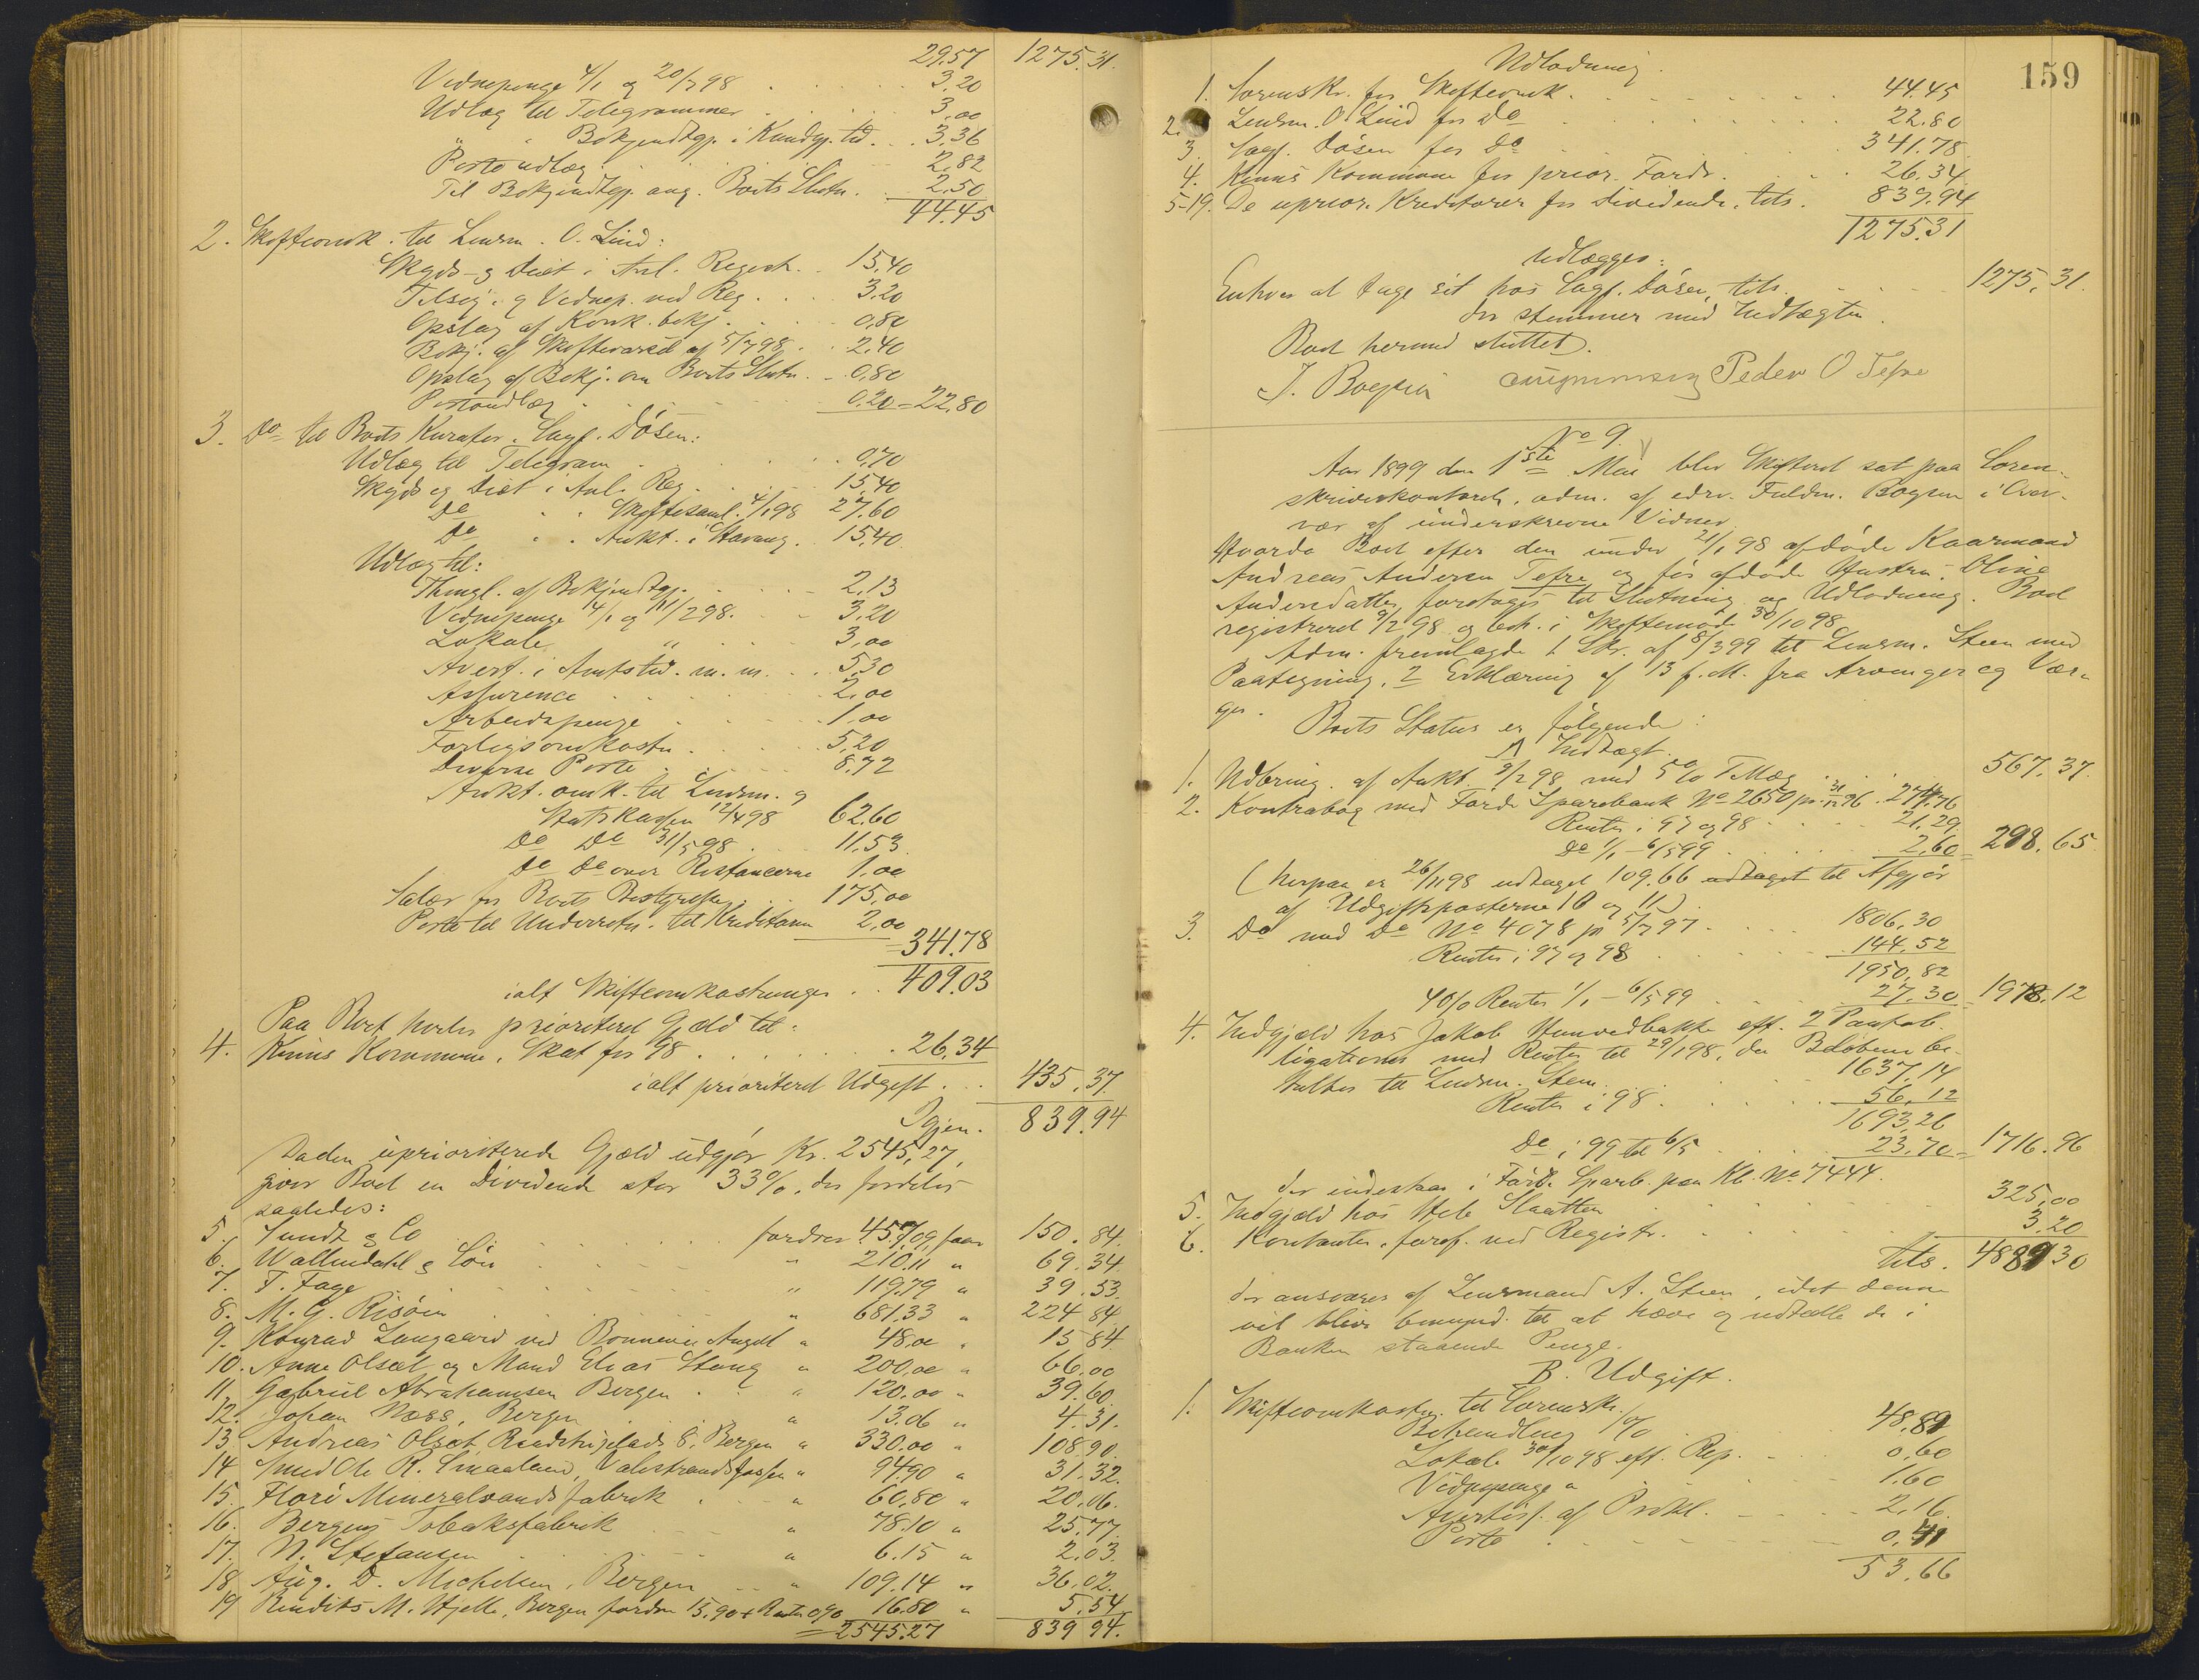 29.57 1275.31.
Vidnepenge 4/1 og 20/7 98 3.20
Udlæg til Telegrammer 3,00
" " Bekjendtgj. i Kundgj. tid. 3.36
Porto udlæg 2,82
Til Bekjendtgj. ang. Boets Slutn. 2,50
44.45
2. Skifteomk. til Lensm. O. Lind:
Skyds- og Diæt i Anl. Registr. 15,40
Tilsig. og Vidnep. ved Reg. 3.20
Opslag af Konk. bekj. 0,80
Bekj. af Skiftevarsel af 5/7 98 2.40
Opslag af Bekj. om Boets Slutn. 0,80
Portoudlæg 0.20 = 22.80
3. Do til Boets Kurator, Sagf. Døsen:
Udlæg til Telegram 0,70
Skyds og Diæt i Anl. Reg. 15,40
Do " " Skiftesaml. 4/1 98 27.60
Do " " Aukt. i Stavang. 15,40
Udlæg til:
Thingl. af Bekjendtgj. 2,13
Vidnepenge 14/1 og 11/2 98. 3,20
Lokale " 3,00
Avert. i Amtstid. m. m. 5.30
Assurence 2,00
Arbeidspenge 1,00
Forligsomkostn. 5,20
Diverse Porto 8.72
Aukt. omk. til Lensm. og
Statskassen 12/4 98 62.60
Do Do 31/5 98 11,53
Do Do over Restancerne 1,00
Salær for Boets Bestyrelse 175,00
Porto til Underretn. til Kreditorer 2,00
341.78
ialt Skifteomkostninger 409.03
Paa Boet hviler prioriteret Gjæld til:
4. Kinns Kommune, Skat for 98 26.34
ialt prioriteret Udgift 435.37.
Igjen. 839.94
Da den uprioriterede Gjæld udgjør Kr. 2545,27,
giver Boet en Dividende stor 33%, der fordeles
saaledes:
5. Sundt & Co fordrer 457,09, faar 150.84.
6. Wallendahl & Søn " 210.11 " 69.34.
7. F. Fage " 119.79 " 39.53.
8. M. G. Risøen " 681.33 " 224.84.
9. Konrad Langaard ved Bonnevie Angell " 48,00 " 15 84.
10. Anne Olset og Mand Elias Stang " 200,00 " 66,00
11. Gabriel Abrahamsen Bergen " 120.00 " 39.60.
12. Johan Næss, Bergen " 13.06 " 4.31.
13. Andreas Olset, Raadstuplads 8, Bergen " 330.00 " 108.90.
14 Smed Ole R. Smaaland, Valestrandsfossen " 94.90 " 31.32.
15. Florø Mineralvandsfabrik " 60,80 " 20.06.
16. Bergens Tobaksfabrik " 78.10 " 25.77.
17. N. Stefansen " 6.15 " 2.03.
18. Aug. D. Michelsen, Bergen " 109.14 " 36,02.
19 Bendiks M. Hjelle, Bergen fordrer 15.90 + Renter 0,90 16.80 " 5.54
2545.27 839 94.
159
Udlodning.
1. Sorenskr. for Skifteomk. 44.45
2. Lensm. O. Lind for Do 22.80
3. Sagf. Døsen for Do 341.78
4. Kinns Kommune for prior. Fordr. 26.34
5-19. De uprior. Kreditorer for Dividende, tils. 839.94
1275.31
Udlægges:
Enhver at tage sit hos Sagf. Døsen, tils. 1275,31.
der stemmer med Indtægten.
Boet hermed sluttet.
J. Bøgsen Peder O Tefre
No 9.
Aar 1899 den 1ste Mai blev Skifteret sat paa Soren-
skriverkontoret, adm. af edsv. Fuldm. Bøgsen i Over-
vær af underskrevne Vidner.
Hvorda Boet efter den under 21/1 98 afdøde Kaarmand
Andreas Andersen Tefre og før afdøde Hustru, Oline
Andersdatter, foretoges til Slutning og Udlodning. Boet
registreret 9/2 98 og beh. i Skiftemøde 30/10 98
Adm. fremlagde 1 Skr. af 8/3 99 til Lensm. Steen med
Paategning, 2 Erklæring af 13 f. M. fra Arvinger og Vær-
ger.
Boets Status er følgende:
A Indtægt.
1. Udbring. af Aukt. 9/2 98 med 5% Tillæg 567.37.
2. Kontrabog med Førde Sparebank No 2650 pr. 31/12 96 274.76
Renter i 97 og 98 21.29
Do 1/1 - 6/5 99 2,60 = 298.65
(herpaa er 26/11 98 udtaget 109.66 udtaget til Afgjør
af Udgiftsposterne 10 og 11).
3. Do med Do No 4078 pr 5/7 97 1806,30
Renter i 97 og 98 144,52
1950,82
4% Renter 1/1 - 6/5 99 27.30 = 1978.12
4. Indgjæld hos Jakob Hunvedbakke eft. 2 Pantob-
ligationer med Renter til 29/1 98, der Beløbene be-
taltes til Lensm. Steen 1637,14
Renter i 98 56,12
1693,26
Do i 99 til 6/5 23.70 = 1716.96
der indestaar i Førde Spareb. paa Kb. No 7444.
5. Indgjæld hos Slaatten 325,00
6. Kontanter, foref. ved Registr. 3.20
tils. 4889 30
der ansvares af Lensmand A. Steen, idet denne
vil blive bemynd. til at hæve og udtælle de i
Banken staaende Penge.
B. Udgift.
1. Skifteomkostn. til Sorenskr.
Behandling % 48,89
Lokale 30/10 98 eft. Rep. 0.60
Vidnepenge " 1.60
Avertiss. af Prokl. 2,16.
Porto 0,41
53.66